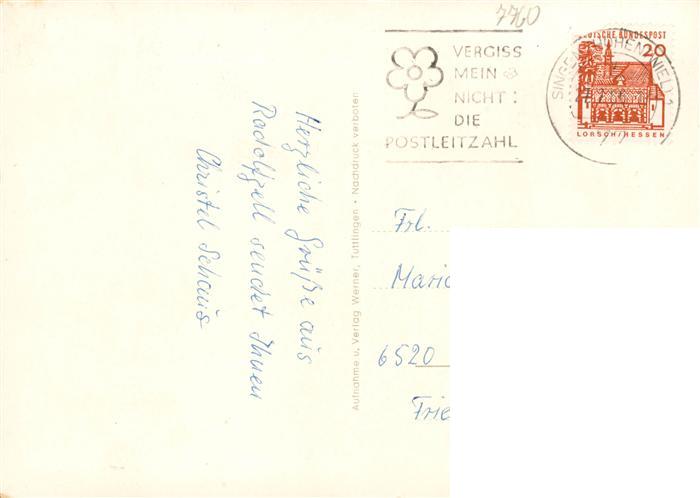 7760
VERGISS
MEIN
NICHT:
DIE
POSTLEITZAHL
DEUTSCHE BUNDESPOST
20
LORSCH/HESSEN
SINGEN
Herzliche Grüße aus
Radolfzell sendet Ihnen
Christel
Aufnahme u. Verlag Werner, Tuttlingen · Nachdruck verboten
Frl.
6520